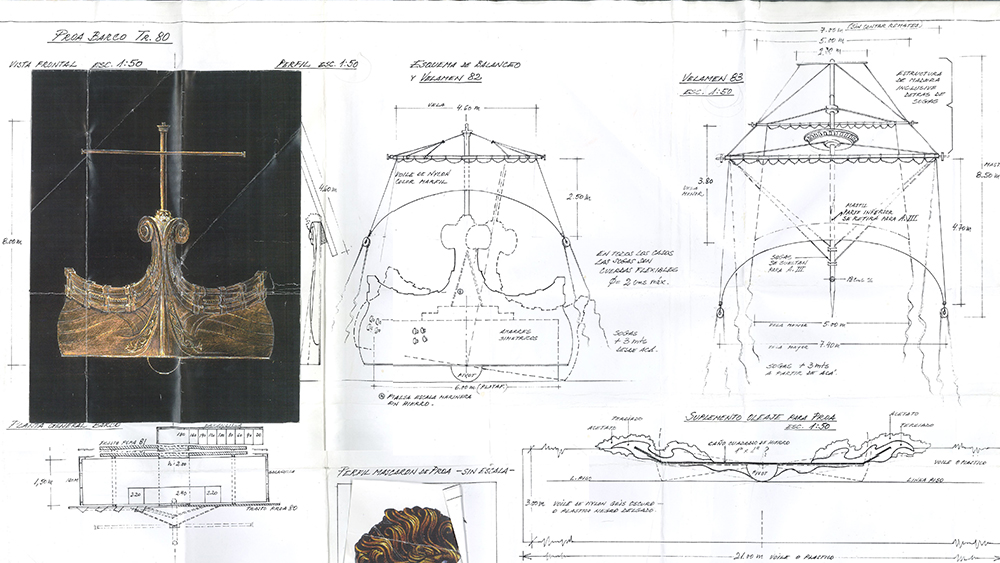 PROA BARCO TR. 80
VISTA FRONTAL ESC. 1:50
PERFIL ESC. 1:50
8.00 m
4.60 m
ESQUEMA DE BALANCEO
Y VELAMEN 82
VELA
4.60 m
VOILE DE NYLON
COLOR MARFIL
2.50 m
EN TODOS LOS CASOS
LAS SOGAS SON
CUERDAS FLEXIBLES
Ø = 2 cms MÁX.
AMARRES
SIMETRICOS
SOGAS
+ 3 mts
DESDE ACÁ.
PIVOT
6.00 m (PLATAF.)
FALSA ESCALA MARINERA
EN HIERRO.
VELAMEN 83
ESC. 1:50
(SIN CONTAR REMATES)
7.00 m
5.00 m
2.90 m
ESTRUCTURA
DE MADERA
INCLUSIVE
DETRÁS DE
SOGAS
3.80
VELA
MENOR
8.50 m
4.70
MASTIL
PARTE INFERIOR
SE RETIRA PARA A. III.
SOGAS
SE SUELTAN
PARA A. III
VELA MENOR
5.00 m
VELA MAYOR
7.40 m
SOGAS + 3 mts
A PARTIR DE ACÁ.
PLANTA GENERAL BARCO
1,50 m
2.20
2.90
2.20
TRASTO PROA 80
PERFIL MASCARON DE PROA - SIN ESCALA -
SUPLEMENTO OLEAJE PARA PROA
ESC. 1:50
TERCIADO
ACETATO
CAÑO CUADRADO DE HIERRO
PIVOT
ACETATO
TERCIADO
VOILE O PLASTICO
L. PISO
LINEA PISO
3.00 m
VOILE DE NYLON GRIS OSCURO
O PLASTICO NEGRO DELGADO.
21.00 m VOILE O PLASTICO